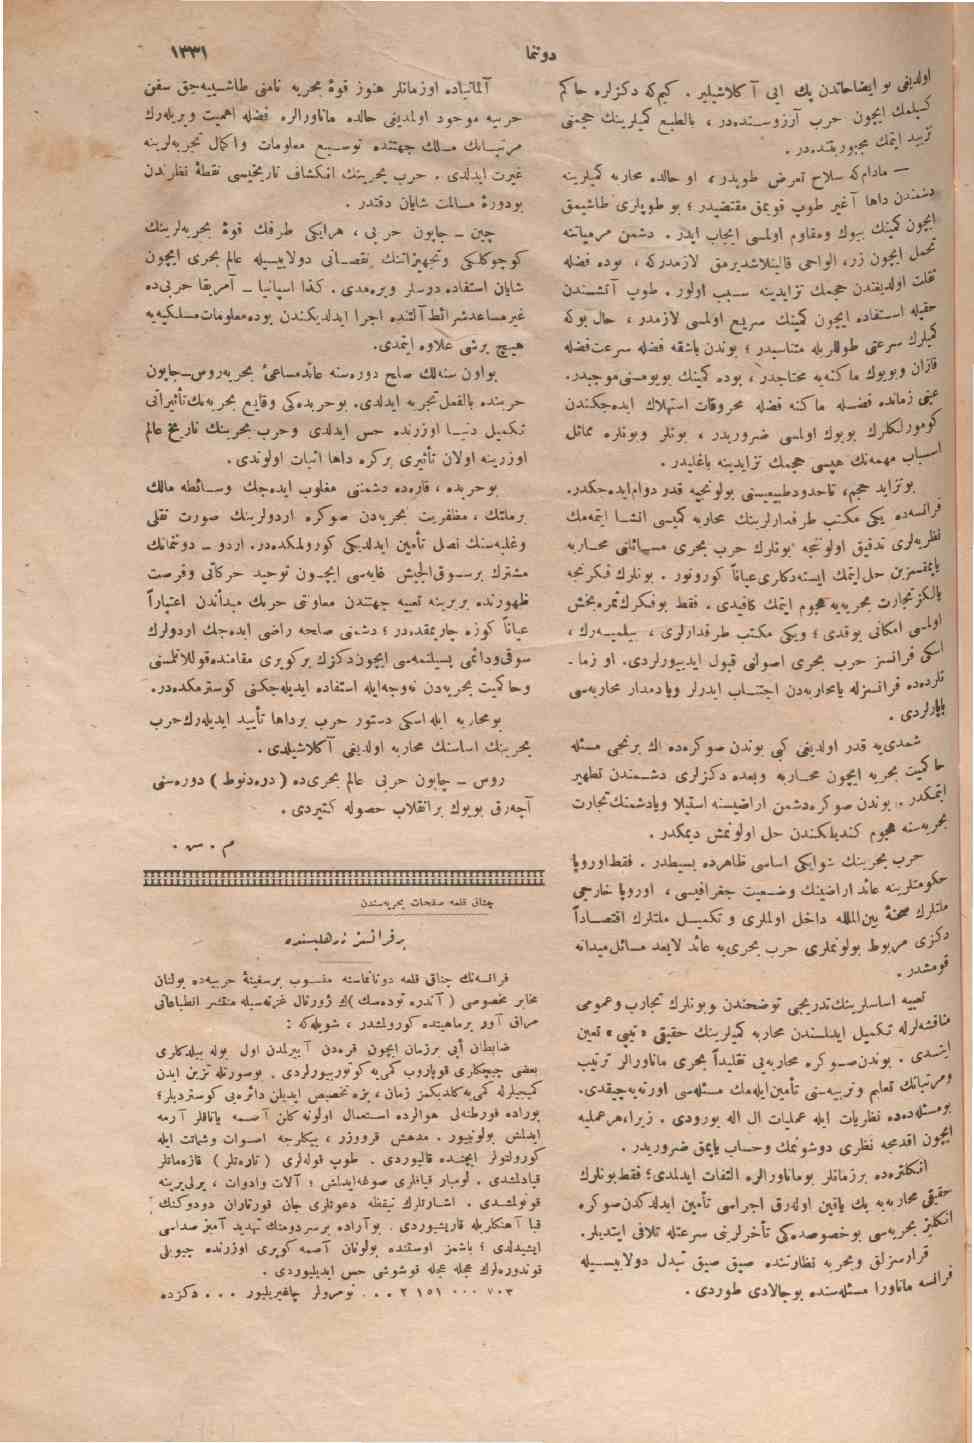 دوننما
١٣٣١
اولدیغی بو ایضاحاتدن پك ایی آ کلاشیلیر . کیم‌که دکزلره حاکم
کسیلمك ایچون حرب آرزوسنده‌در ، بالطبع کمیلرینك حجمنی
تزیید ایتمك مجبوریتنده‌در .
— مادام‌که سلاح تعرض طوپدر ، او حالده محاربه کمیلرینه
دشمندن داها آغیر طوپ قویمق مقتضیدر ؛ بو طوپلری طاشیمق
ایچون کمینك بیوك ومقاوم اولمسی ایجاب ایدر . دشمن مرمیاتنه
تحمل ایچون زره الواحی قالینلاشدیرمق لازمدرکه ، بوده فضله
ثقلت اولدیغندن حجمك تزایدینه سبب اولور . طوپ آتشندن
حقیله استفاده ایچون کمینك سریع اولمسی لازمدر ، حال بوکه
کمیلرك سرعتی طوللریله متناسبدر ؛ بوندن باشقه فضله سرعت فضله
قازان وبویوك ماکنه‌یه محتاجدر ، بوده کمینك بویومسنی موجبدر.
عینی زمانده فضله ماکنه فضله محروقات استهلاك ایده‌جکندن
کومورلکلرك بویوك اولمسی ضروریدر ، بونلر وبونلره مماثل
اسباب مهمه‌نك هپسی حجمك تزایدینه باغلیدر .
بوتزاید حجم، تاحدود طبیعیسنی بولونجیه قدر دوام ایده‌جکدر.
فرانسه‌ده یکی مکتب طرفدارلرینك محاربه کمیسی انشا ایتمه‌مك
نظریه‌لری تدقیق اولونجه بونلرك حرب بحری مسائلنی محاربه
یاپمقسزین حل ایتمك ایسته‌دکلری عیاناً کورونور . بونلرك فکرنجه
یالکز تجارت بحریه‌یه هجوم ایتمك کافیدی . فقط بوفکرك ثمره‌بخش
اولمسی امکانی یوقدی ؛ ویکی مکتب طرفدارلری ، بیلمیه‌رك ،
اسکی فرانسز حرب بحری اصولنی قبول ایدییورلردی. او زما-
نلرده‌ده فرانسزلر یامحاربه‌دن اجتناب ایدرلر ویادمدار محاربه‌سی
یاپارلردی .
شمدی‌یه قدر اولدیغی کبی بوندن صوکره‌ده اك برنجی مسئله
حاکمیت بحریه ایچون محاربه وبعده دکزلری دشمندن تطهیر
ایتمکدر . بوندن صوکره دشمن اراضیسنه استیلا ویادشمنك تجارت
بحریه‌سنه هجوم کندیلکندن حل اولونمش دیمکدر .
حرب بحرینك شوایکی اساسی ظاهرده بسیطدر . فقط اوروپا
حکومتلرینه عائد اراضینك وضعیت جغرافیسی ، اوروپا خارجی
ملتلرك صحنهٔ بین‌الملله داخل اولملری و تکمیل ملتلرك اقتصاداً
دکزی مربوط بولونملری حرب بحری‌یه عائد لایعد مسائل میدانه
قومشدر .
تعبیه اساسلرینك تدریجی توضحندن وبونلرك تجارب وعمومی
مناقشه‌لرله تکمیل ایدلسندن محاربه کمیلرینك حقیقی «تیپی» تعین
ایتدی . بوندن صوکره محاربه‌یی تقلیداً بحری ماناورالر ترتیب
ومرتباتك تعلیم وتربیه‌سنی تأمین ایله‌مك مسئله‌سی اورته‌یه چیقدی.
بومسئله‌ده‌ده نظریات ایله عملیات ال اله یورودی . زیرا، هر عملیه
ایچون اقدمجه نظری دوشونمك وحساب یاپمق ضروریدر .
انکلتره‌ده برزمانلر بوماناورالره التفات ایدلمدی؛ فقط بونلرك
حقیقی محاربه‌یه پك یاقین اوله‌رق اجراسی تأمین ایدلدکدن صوکره
انکلیز بحریه‌سی بوخصوصده‌کی تأخرلرینی سرعتله تلافی ایتدیلر.
قرارسزلق وبحریه نظارتنده صیق صیق تبدل دولاییسیله
فرانسه ماناورا مسئله‌سنده بوجالادی طوردی .
آلمانیاده اوزمانلر هنوز قوهٔ بحریه نامنی طاشییه‌جق سفن
حربیه موجود اولمدیغی حالده ماناورالره فضله اهمیت ویریله‌رك
مرتباتك مسلك جهتنده توسیع معلومات واکمال تجربه‌لرینه
غیرت ایدلدی . حرب بحرینك انکشاف تاریخیسی نقطهٔ نظرندن
بودورهٔ مسالمت شایان دقتدر .
چین – جاپون حربی ، هرایکی طرفك قوهٔ بحریه‌لرینك
کوچوکلکی وتجهیزاتنك نقصانی دولاییسیله عالم بحری ایچون
شایان استفاده درسلر ویره‌مدی. کذا اسپانیا – آمریقا حربی‌ده
غیرمساعد شرائط آلتنده اجرا ایدلدیکندن بوده معلومات مسلکیه‌یه
هیچ برشی علاوه ایتمدی.
بواون سنه‌لك صلح دوره‌سنه عائد مساعئ بحریه روس–جاپون
حربنده بالفعل تجربه ایدلدی. بوحربده‌کی وقایع بحریه‌نك تأثیراتی
تکمیل دنیا اوزرنده حس ایدلدی وحرب بحرینك تاریخ عالم
اوزرینه اولان تأثیری برکره داها اثبات اولوندی .
بوحربده ، قاره‌ده دشمنی مغلوب ایده‌جك وسائطه مالك
برملتك ، مظفریت بحریه‌دن صوکره اردولرینك صورت نقلی
وغلبه‌سنك نصل تأمین ایدلدیکی کورولمکده‌در. اردو – دوننمانك
مشترك برسوق‌الجیش غایه‌سی ایچون توحید حرکاتی وفرصت
ظهورنده بربرینه تعبیه جهتندن معاونتی حربك مبدأندن اعتباراً
عیاناً کوزه چارپمقده‌در ؛ دشمنی صلحه راضی ایده‌جك اردولرك
سوقی ودائمی بسلنمه‌سی ایچون دکزك برکوپری مقامنده قوللانلمسنی
وحاکمیت بحریه‌دن نه‌وجه‌ایله استفاده ایدیله‌جکنی کوسترمکده‌در.
بومحاربه ایله اسکی دستور حرب برداها تأیید ایدیله‌رك حرب
بحرینك اساسنك محاربه اولدیغی آکلاشیلدی .
روس – جاپون حربی عالم بحری‌ده ( دره‌دنوط ) دوره‌سنی
آچه‌رق بویوك برانقلاب حصوله کتیردی .
م . س .
چناق قلعه صفحات بحریه‌سندن
برفرانسز زرهلیسنده
فرانسه‌نك چناق قلعه دونانماسنه منسوب برسفینهٔ حربیه‌ده بولنان
مخابر مخصوصی ( آندره توده‌سك )ك ژورنال غزته‌سیله منتشر انطباعاتی
مراق آور برماهیتده کورولمشدر ، شویله‌که :
ضابطان أیی برزمان ایچون قره‌دن آیبرلمدن اول بوله بیلدکلری
بعضی چیچکلری قوپاروب کمی‌یه کوتورییورلردی . بوصورتله تزیین ایدن
کمیجیلرله کمی‌یه کلدیکمز زمان ، بزه تخصیص ایدیلن دائره‌یی کوستردیلر ؛
بوراده فورطنه‌لی هوالرده استعمال اولونه کلن آصمه یاتاقلر آرمه
ایدلش بولونییور . مدهش قرووزر ، بیکلرجه اصوات وشماتت ایله
کورولتولر ایچنده قالیوردی . طوپ قوله‌لری ( تاره‌تلر ) قازه‌ماتلر
قپادلمشدی . لومبار قپاقلری صوغه‌ایدلش ؛ آلات وادوات ، یرلی‌یرینه
قونولمشدی . اشارتلرك تیقظه دعوتلری جان قورتاران دودوکنك
قبا آهنکلریله قاریشیوردی . بوآراده برسردومنك تهدید آمیز صداسی
ایشیدلدی ؛ باشمز اوستنده بولونان آصمه کوپری اوزرنده جیوبلی
قوندوره‌لرك عجله عجله قوشوشی حس ایدیلیوردی .
٧٠٣ ... ٢١٥١ ... نومرولر چاغیریلیور ... دکزده